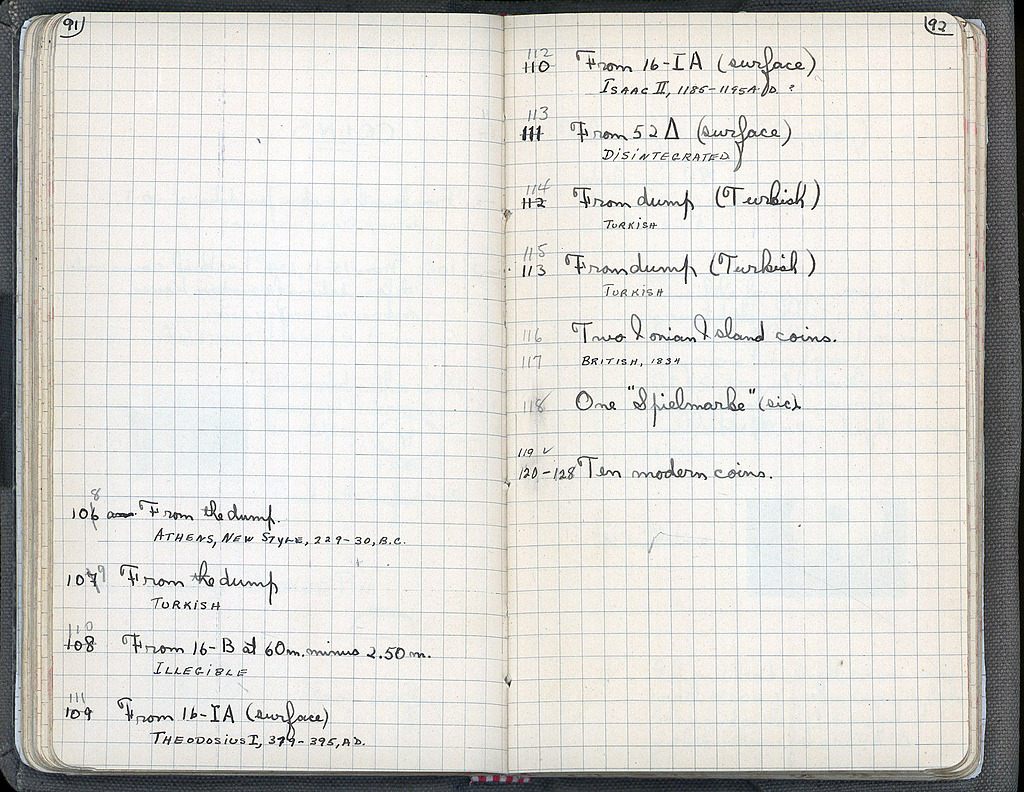 91
8
106 From the dump.
ATHENS, NEW STYLE, 229-30, B.C.
9
107 From the dump
TURKISH
110
108 From 16-B at 60m. minus 2.50 m.
ILLEGIBLE
111
109 From 16-IA (surface)
THEODOSIUS I, 379-395, A.D.
92
112
110 From 16-IA (surface)
ISAAC II, 1185-1195 A.D. ?
113
111 From 52 Δ (surface)
DISINTEGRATED
114
112 From dump (Turkish)
TURKISH
115
113 From dump (Turkish)
TURKISH
116 Two Ionian Island coins.
117 BRITISH, 1834
118 One "Spielmarke" (sic).
119 ✓
120-128 Ten modern coins.